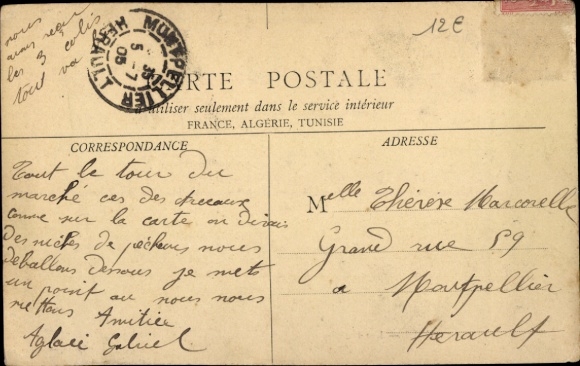 nous
avons reçu
les 3 colis
tout va b
12€
MONTPELLIER
HERAULT
5 -7
05
CARTE POSTALE
à utiliser seulement dans le service intérieur
FRANCE, ALGÉRIE, TUNISIE
CORRESPONDANCE
ADRESSE
Tout le tour du
marché ces des
comme sur la carte on dirais
des niches de pêcheurs nous
deballons dessous je mets
un point ou nous nous
mettons Amitiés
Aglaé Gabriel
Melle Thérèse Marcorelle
Grand rue 59
a Montpellier
Herault